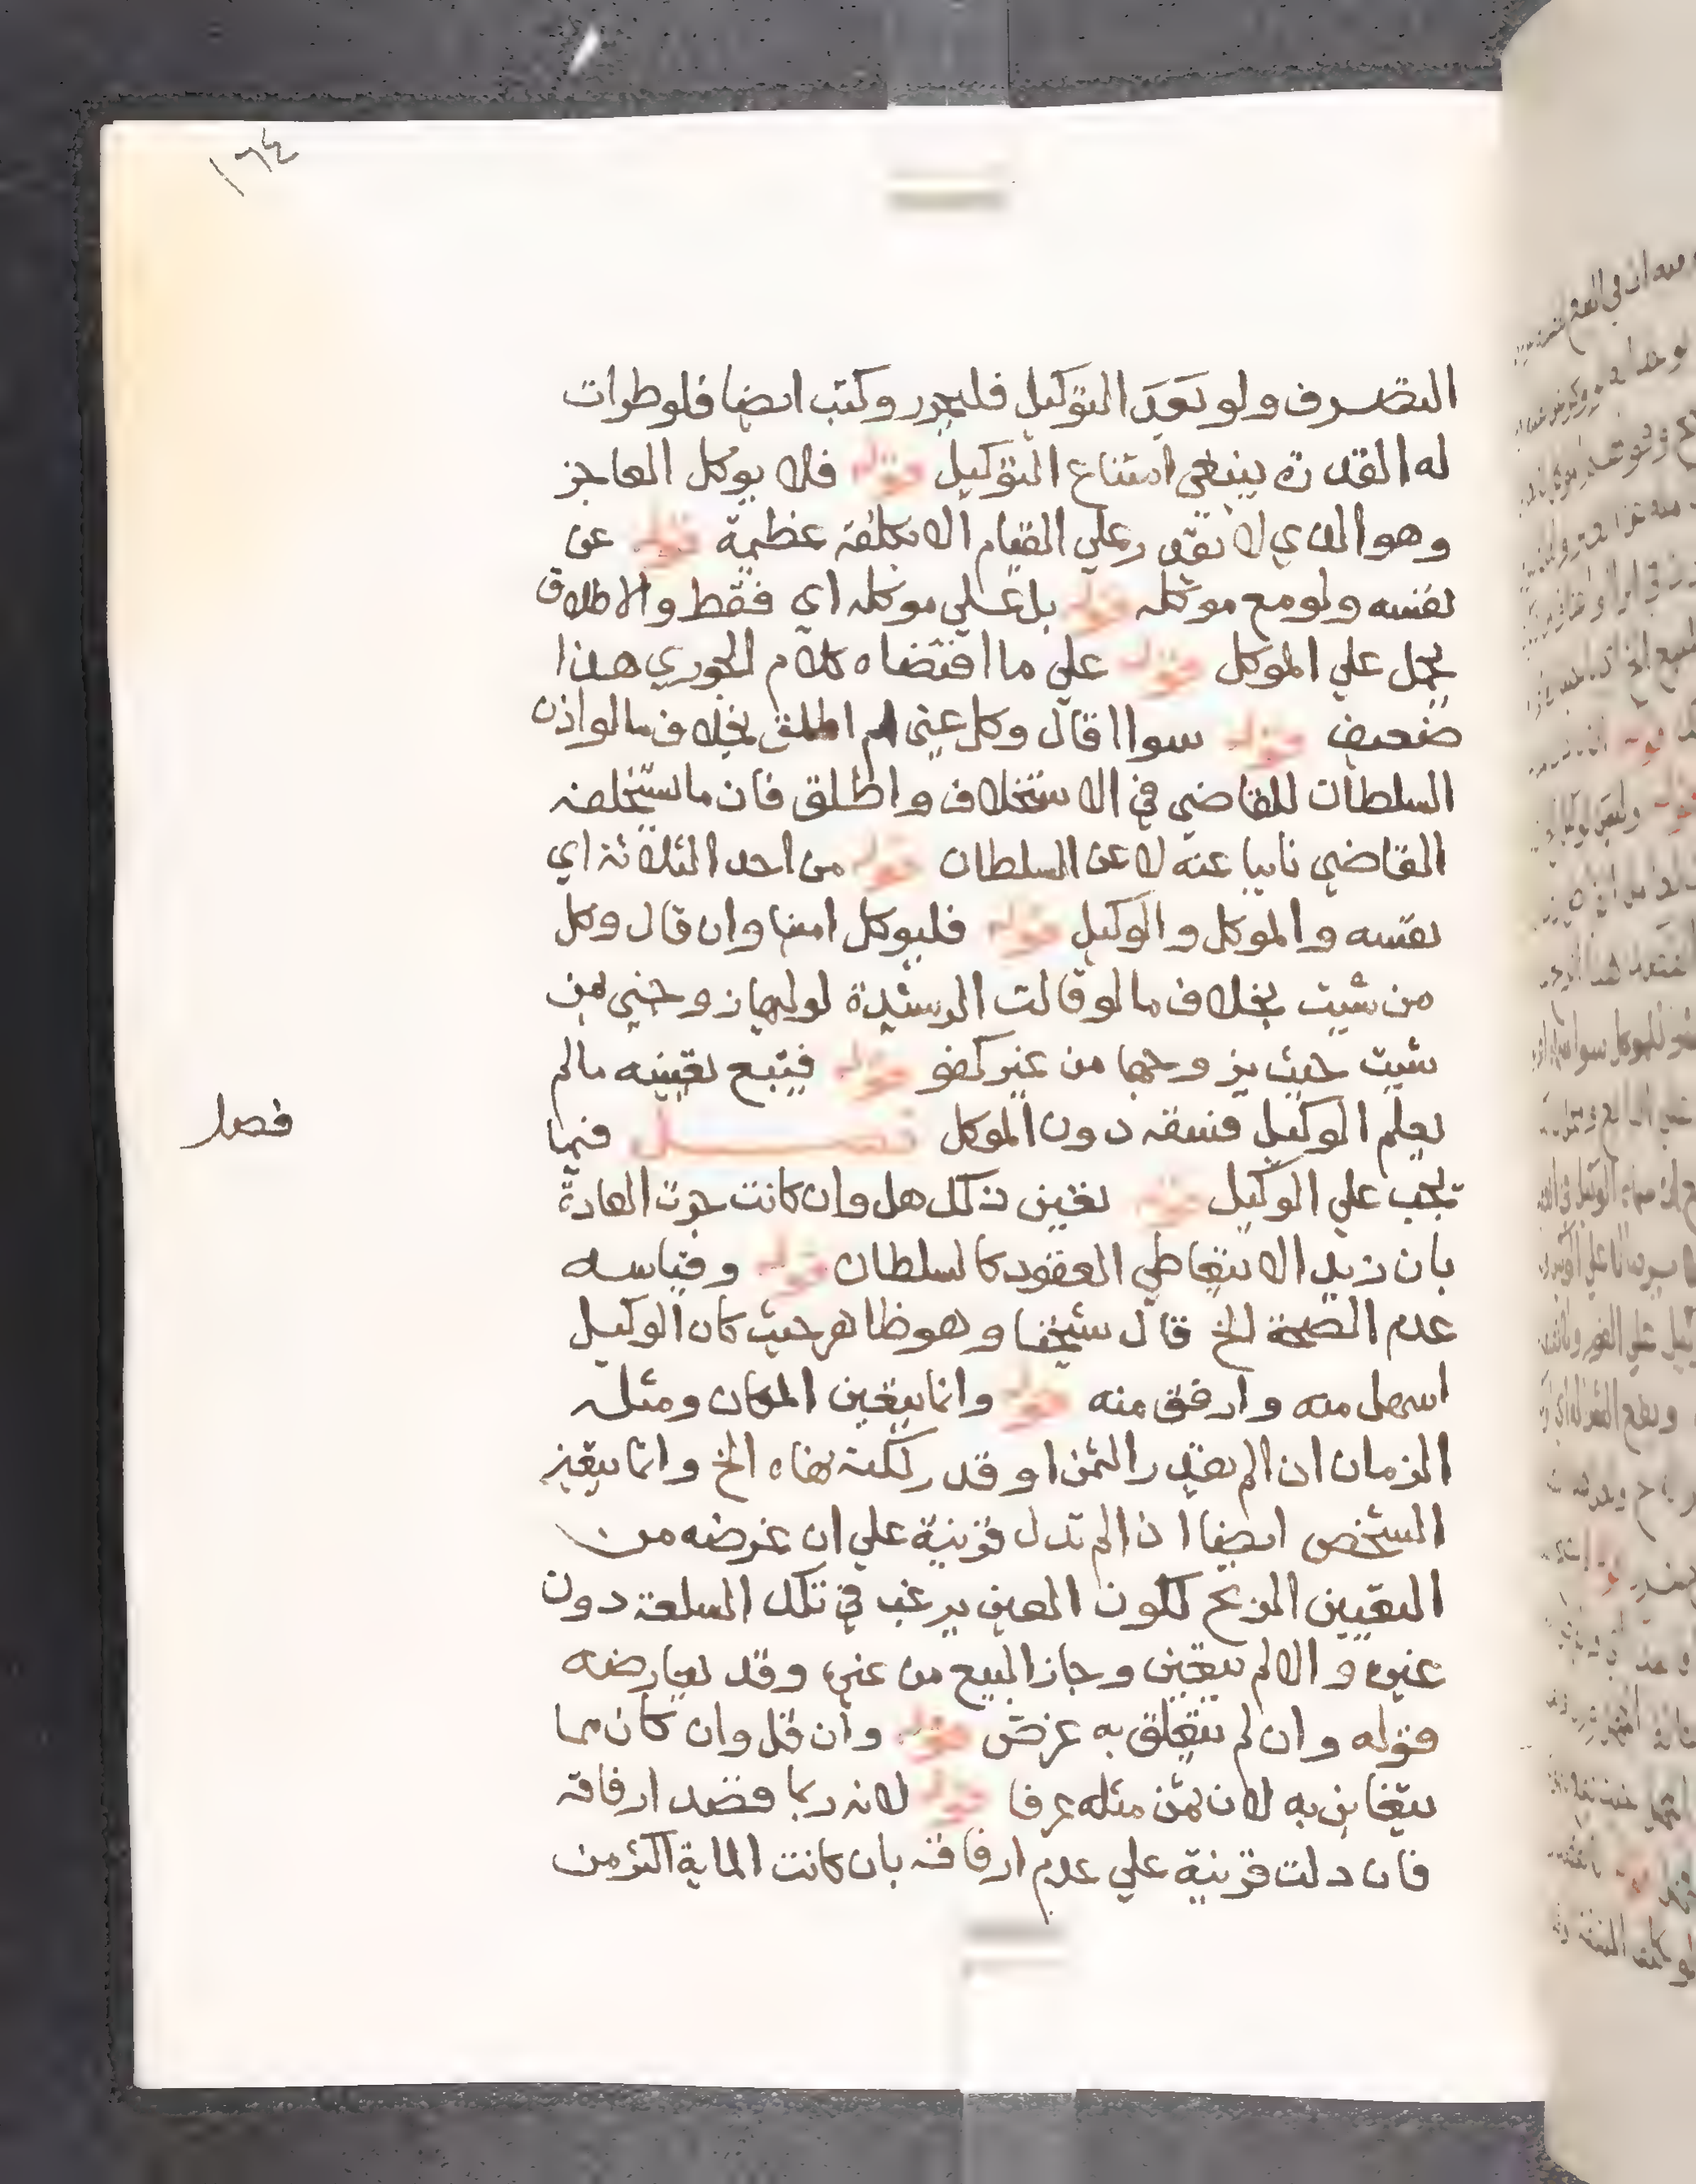 ١٦٤
التصرف ولو بعد التوكيل فليحرر وكتب ايضا فلو طرات
له القدرة ينبغي امتناع التوكيل قوله فلا يوكل العاجز
وهو الذي لا يقدر علي القيام الا بكلفة عظيمة قوله عن
نفسه ولو مع موكله قوله بل علي موكله اي فقط والاطلاق
يحمل علي الموكل قوله علي ما اقتضاه كلام الجوري هذا
ضعيف قوله سوا اقال وكل عني ام اطلق بخلاف ما لو اذن
السلطان للقاضي في الاستخلاف واطلق فان ما يستخلفه
القاضي نايبا عنه لا عن السلطان قوله من احد الثلاثة اي
نفسه والموكل والوكيل قوله فليوكل امينا وان قال وكل
من شيت بخلاف ما لو قالت الرشيدة لوليها زوجني بمن
شيت حيث يزوجها من غير كفو قوله فيتبع تعيينه ما لم
يعلم الوكيل فسقه دون الموكل فصل فيما
فصل
يجب علي الوكيل قوله تعين ذلك هل وان كانت جرت العادة
بان زيد الا يتعاطي العقود كالسلطان قوله وقياسه
عدم الصحة الخ قال شيخنا وهو ظاهر حيث كان الوكيل
اسهل منه وارفق منه قوله وانما يتعين المكان ومثله
الزمان ان لم يقدر الثمن او قدر لكنه نهاه الخ وانما يتعين
الشخص ايضا اذا لم تدل قرينة علي ان غرضه من
التعيين الربح لكون المعين يرغب في تلك السلعة دون
غيره والا لم يتعين وجاز البيع من غيره وقد يعارضه
قوله وان لم يتعلق به غرض قوله وان قل وان كان مما
يتغابن به لان ثمن مثله عرفا قوله لانه ربما قصد ارفاقه
فان دلت قرينة علي عدم ارفاقه بان كانت الماية اكثر من